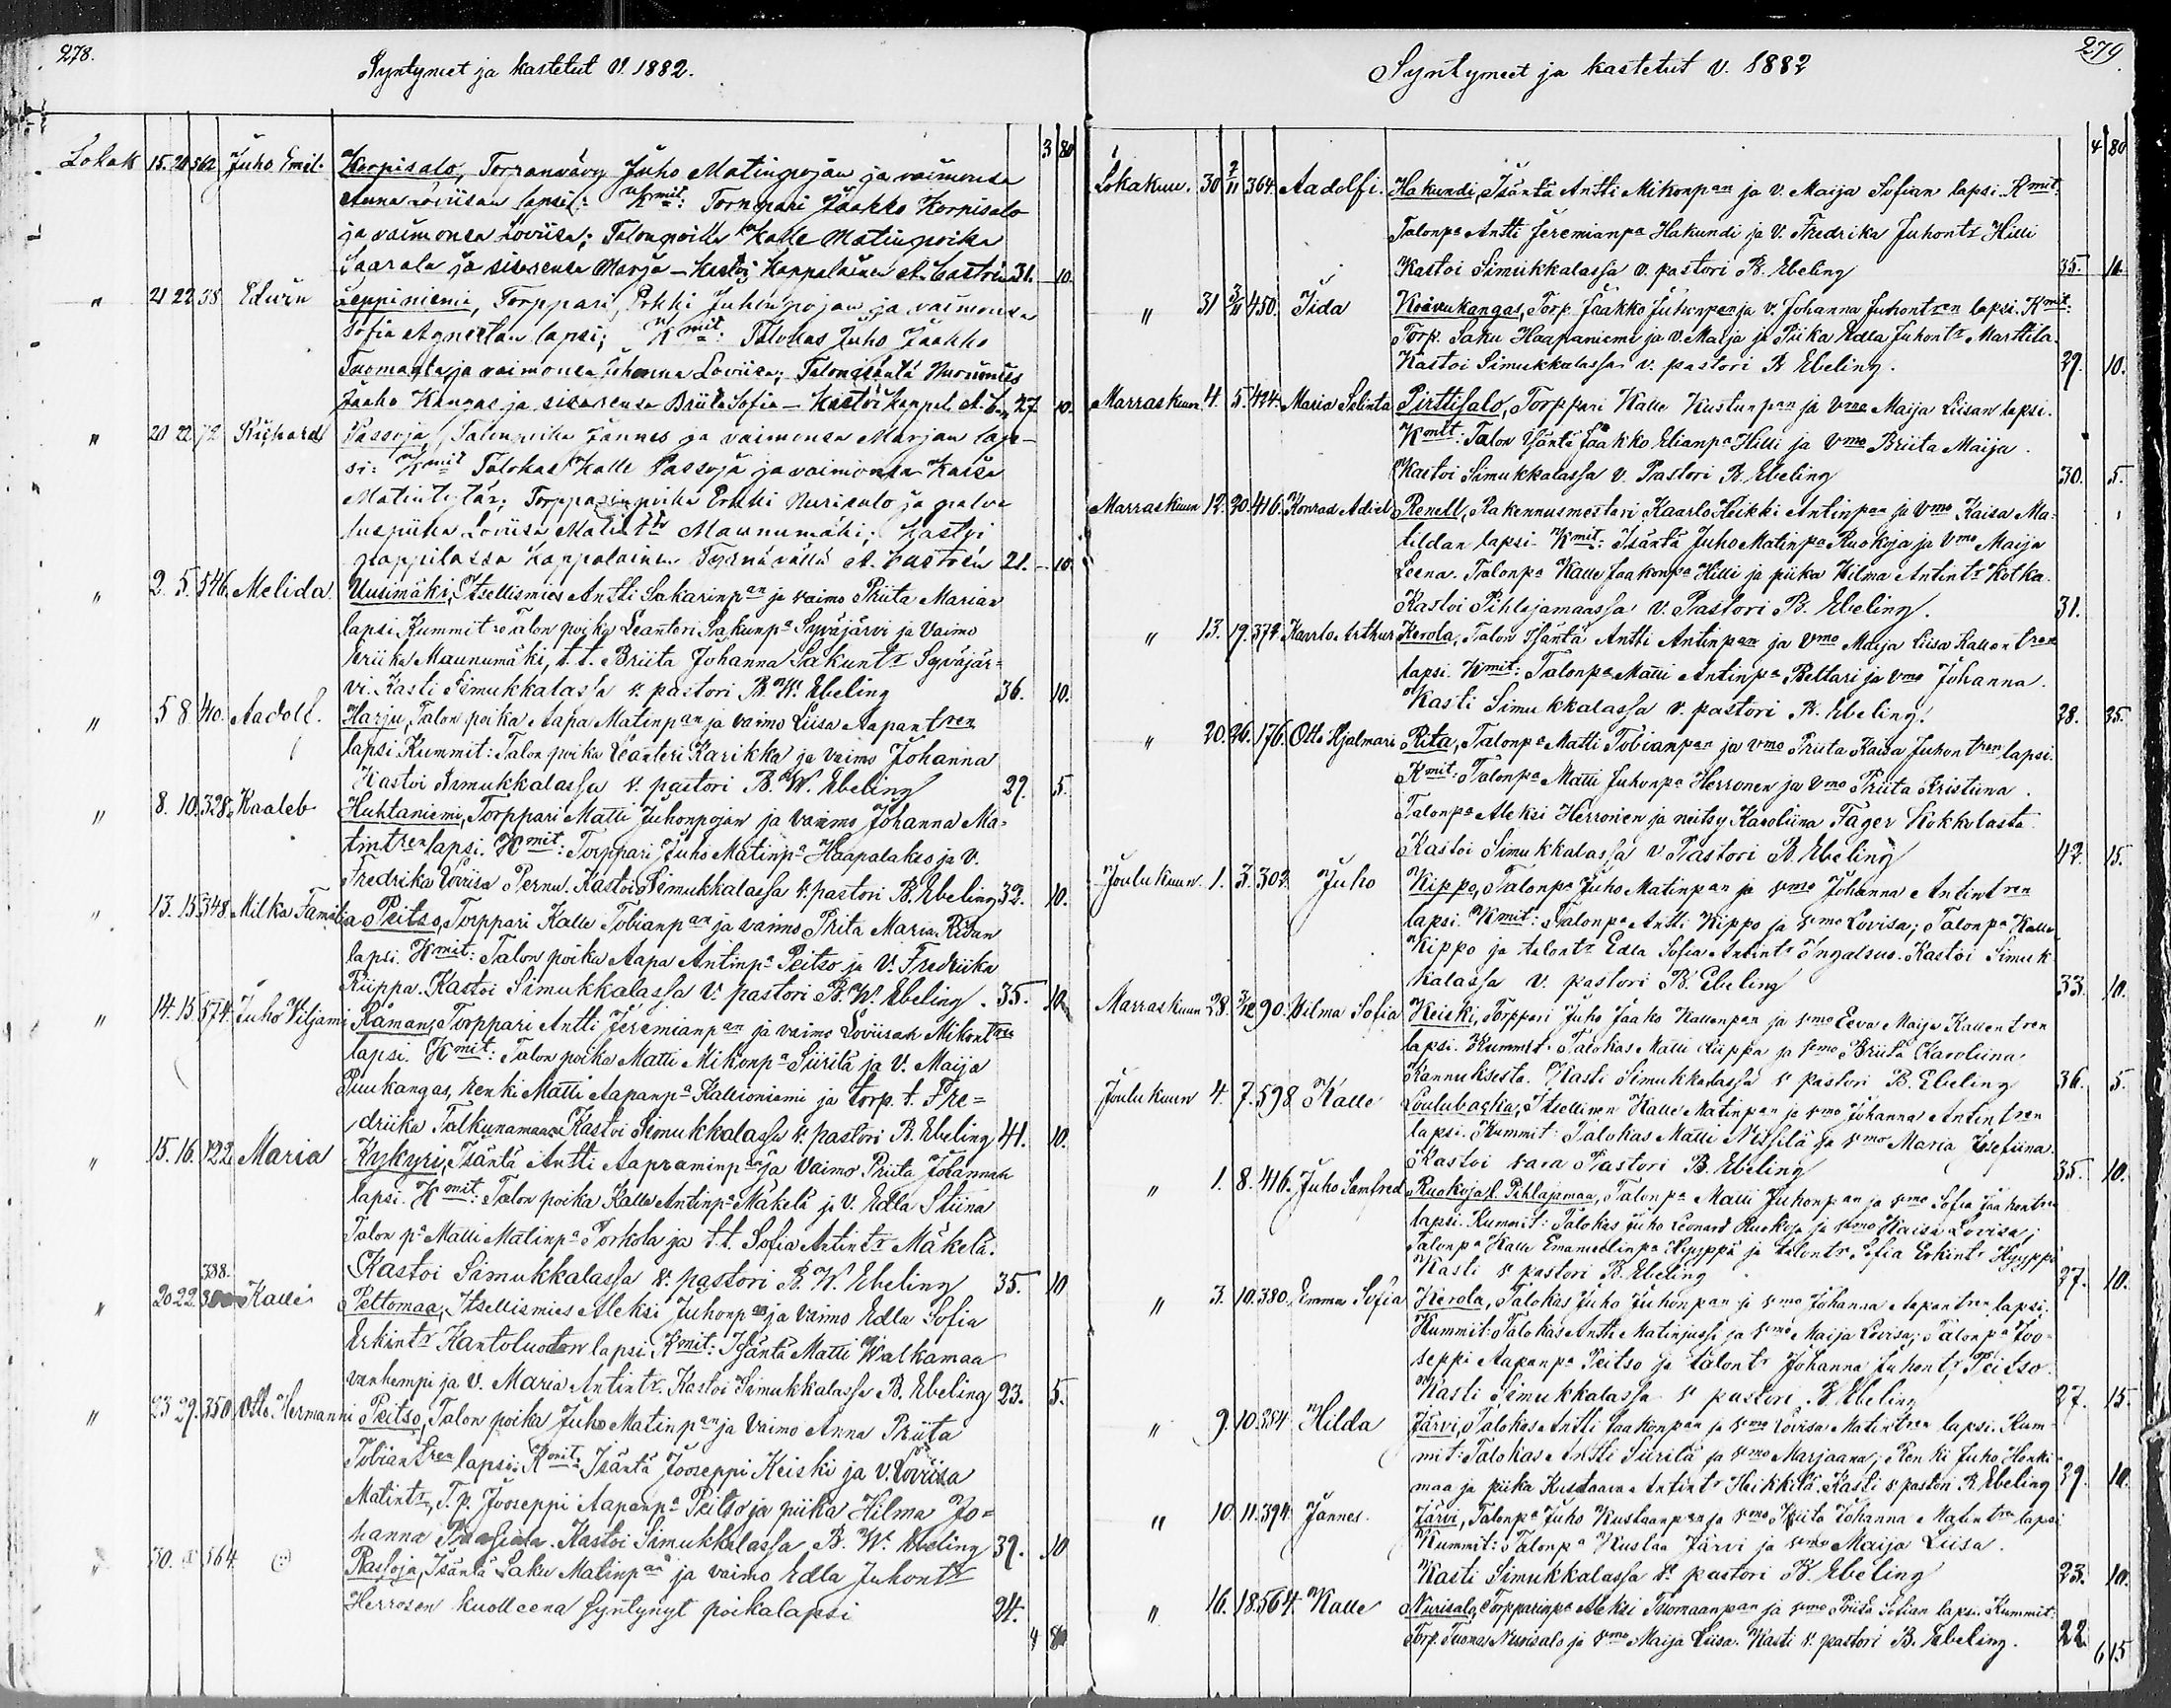 278.
Syntyneet ja kastetut v. 1882.
3 80
Lokak 15. 20 562 Juho Emil. Korpisalo, Torpanvävy Juho Matinpojan ja vaimonsa
Anna Loviisan lapsi: Kmit: Torppari Jaakko Korpisalo
ja vaimonsa Loviisa; Talonpoika Kalle Matinpoika
Saarala ja sisarensa Marja – Kastoi Kappalainen A. Castrén 31. 10.
" 21 22 38 Edvin Leppiniemi, Torppari, Erkki Juhonpojan ja vaimonsa
Sofia Agnetan lapsi; Kmit: Talokas Juho Jaakko
Tuomaala ja vaimonsa Johanna Loviisa; Talonisäntä Nuorimies
Jaako Kangas ja sisarensa Briita Sofia – Kastoi kappal. A. C. 27 10.
" 21 22 72 Rickard Passoja, Talonpoika Jannes ja vaimonsa Marjan lap-
si: Kmit Talokas Kalle Passoja ja vaimonsa Kaisa
Matintytär; Torpparinpoika Erkki Nurisalo ja palve
luspiika Loviisa Matintr Maunumäki; Kastoi
pappilassa kappalainen A. Castrén 21. 10.
" 2. 5. 546. Melida. Uusimäki, Itsellismies Antti Sakarinpan ja vaimo Priita Marian
lapsi. Kummit: Talon poika Leanteri Sakunpa Syväjärvi ja Vaimo
Kriika Maunumäki, t.t. Briita Johanna Sakuntr Syväjär=
vi. Kasti Simukkalassa v. pastori B. W. Ebeling 36. 10.
" 5 8 40. Aadolf. Harju, Talon poika Aapa Matinpan ja vaimo Liisa Aapantren
lapsi. Kummit: Talon poika Leanteri Karikka ja vaimo Johanna
Kastoi Simukkalassa v. pastori B. W. Ebeling 29. 5.
" 8. 10. 328. Kaaleb Huhtaniemi, Torppari Matti Juhonpojan ja vaimo Johanna Ma=
tintren lapsi. Kmit: Torppari Juho Matinpa Haapalakso ja v.
Fredrika Loviisa Pernu. Kastoi Simukkalassa v. pastori B. Ebeling 32. 10.
" 13. 15. 348 Milka Familia Peitso, Torppari Kalle Tobianpan ja vaimo Priita Maria
lapsi. Kmit: Talon poika Aapa Antinpa Peitso ja V. Fredriika
Riippa. Kastoi Simukkalassa v. pastori B. W. Ebeling. 35. 10
" 14. 15. 574. Juho Viljami Rämans, Torppari Antti Jeremianpan ja vaimo Loviisan Mikontren
lapsi. Kmit: Talon poika Matti Mikonpa Siirilä ja V. Maija
Puukangas, renki Matti Aapanpa Kallioniemi ja torp. t. Fre=
driika Talkunamaa. Kastoi Simukkalassa v. pastori B. Ebeling 41. 10.
" 15. 16. 422 Maria Kykyri, Isäntä Antti Aapraminpan ja Vaimo Priita Johannan
lapsi. Kmit: Talon poika Kalle Antinpa Mäkelä ja V. Edla Stiina
Talon pa Matti Matinpa Torkola ja t.t. Sofia Antintr Mäkelä.
Kastoi Simukkalassa v. pastori B. W. Ebeling 35. 10
338.
" 20 22. Kalle Peltomaa, Itsellismies Aleksi Juhonpan ja vaimo Edla Sofia
Erkintr Kantoluoden lapsi. Kmit: Isäntä Matti Walkamaa
vanhempi ja v. Maria Antintr. Kastoi Simukkalassa B. Ebeling 23. 5.
" 23 29. 350 Otto Hermanni Peitso, Talon poika Juho Matinpan ja Vaimo Anna Priita
Tobiantren lapsi. Kmit: Isäntä Jooseppi Keiski ja v. Loviisa
Matintr, T.p. Jooseppi Aapanpa Peitso ja piika Hilma Jo=
hanna Kastoi Simukkalassa B. W. Ebeling 39. 10
" 30. 564 Passoja, Isäntä Saku Matinpan ja vaimo Edla Juhontr
Herrosen kuolleena syntynyt poikalapsi 24.
4 80
279.
Syntyneet ja kastetut v. 1882
4 80
Lokakuu. 30 2/11 364. Aadolfi. Hakundi, Isäntä Antti Mikonpan ja v. Maija Sofian lapsi. Kmit:
Talonpa Antti Jeremianpa Hakundi ja V. Fredrika Juhontr Hilli
Kastoi Simukkalassa v. pastori B. Ebeling 35. 10.
" 31 3/11 450. Iida Koivukangas, Torp. Jaakko Juhonpan ja v. Johanna Juhontren lapsi. Kmit:
Torp. Saku Haapaniemi ja v. Maija ja Piika Edla Juhontr Marttila.
Kastoi Simukkalassa v. pastori B Ebeling. 29. 10.
Marraskuun 4. 5. 424. Maria Selinta Pirttisalo, Torppari Kalle Kustunpan ja Vmo Maija Liisan lapsi.
Kmit: Talon Isäntä Jaakko Elianpa Hilli ja Vmo Briita Maija.
Kastoi Simukkalassa v. Pastori B. Ebeling 30. 5.
Marraskuun 12. 20. 416. Konrad Adiel Renell, Rakennusmestari Kaarlo Heikki Antinpan ja Vmo Kaisa Ma=
tildan lapsi. Kmit: Isäntä Juho Matinpa Ruokoja ja Vmo Maija
Leena. Talonpa Kalle Jaakonpa Hilli ja piika Hilma Antintr Kotka.
Kastoi Pihlajamaassa v. Pastori B. Ebeling. 31.
" 13. 19. 372. Kaarlo Arthur Kerola, Talon Isäntä Antti Antinpan ja Vmo Maija Liisa Kallentren
lapsi. Kmit: Talonpa Matti Antinpa Peltari ja Vmo Johanna.
Kasti Simukkalassa v. pastori B. Ebeling. 38. 35.
" 20. 26. 176. Otto Hjalmari Rita, Talonpa Matti Tobianpan ja vmo Priita Kaisa Juhontren lapsi.
Kmit: Talonpa Matti Juhonpa Herronen ja Vmo Priita Kristiina.
Talonpa Aleksi Herronen ja neitsy Karoliina Fager Kokkolasta.
Kastoi Simukkalassa v Pastori B. Ebeling 42. 15.
Joulukuun 1. 3. 302. Juho Kippo, Talonpa Juho Matinpan ja vmo Johanna Antintren
lapsi. Kmit: Talonpa Antti Kippo ja vmo Lovisa; Talonpa Kalle
Kippo ja talontr Edla Sofia Antintr Ingalsuo. Kastoi Simuk
kalassa v. pastori B. Ebeling 33. 10.
Marraskuun 28. 3/12 90. Vilma Sofia Keiski, Torppari Juho Jaako Kallenpan ja vmo Eeva Maija Kallentren
lapsi. Kummit: Talokas Matti Riippa ja vmo Briita Karoliina
Kannuksesta. Kasti Simukkalassa v pastori B. Ebeling 36. 5.
Joulukuun 4. 7. 598. Kalle Loulubacka, Itsellinen Kalle Matinpan ja vmo Johanna Antintren
lapsi. Kummit: Talokas Matti Nissilä ja vmo Maria Josefiina.
Kastoi vara Pastori B. Ebeling 35. 10.
" 1. 8. 416. Juho Sanfred Ruokoja l. Pihlajamaa, Talonpa Matti Juhonpan ja vmo Sofia Jaakontren
lapsi. Kummit: Talokas Juho Leonard Ruokoja ja vmo Kaisa Lovisa;
Talonpa Kalle Emanuelinpa Hyyppä ja talontr Sofia Erkintr Hyyppä
Kasti v pastori B. Ebeling 37. 10.
" 3. 10. 380. Emma Sofia Kerola, Talokas Juho Juhonpan ja vmo Johanna Aapantren lapsi.
Kummit: Talokas Antti Matinjussi ja vmo Maija Lovisa; Talonpa Joo-
seppi Aapanpa Peitso ja talontr Johanna Juhontr Peitso.
Kasti Simukkalassa v pastori. B. Ebeling 27. 15.
" 9. 10. 354. Hilda Järvi, Talokas Antti Jaakonpan ja vmo Lovisa Matintren lapsi. Kum-
mit: Talokas Antti Siirilä ja vmo Marjaana; Renki Juho Honki
maa ja piika Kustaava Antintr Heikkilä. Kasti v pastori B. Ebeling 39. 10.
" 10. 11. 394. Jannes. Järvi, Talonpa Juho Kustaanpan ja vmo Priita Johanna Matintren lapsi
Kummit: Talonpa Kustaa Järvi ja vmo Maija Liisa.
Kasti Simukkalassa v. pastori B. Ebeling 23. 10.
" 16. 18. 564. Kalle Nurisalo, Torpparinpa Aleksi Tuomaanpan ja vmo Priita Sofian lapsi. Kummit:
Torp. Tuomas Nurisalo ja vmo Maija Liisa. Kasti v. pastori B. Ebeling. 22
6 15